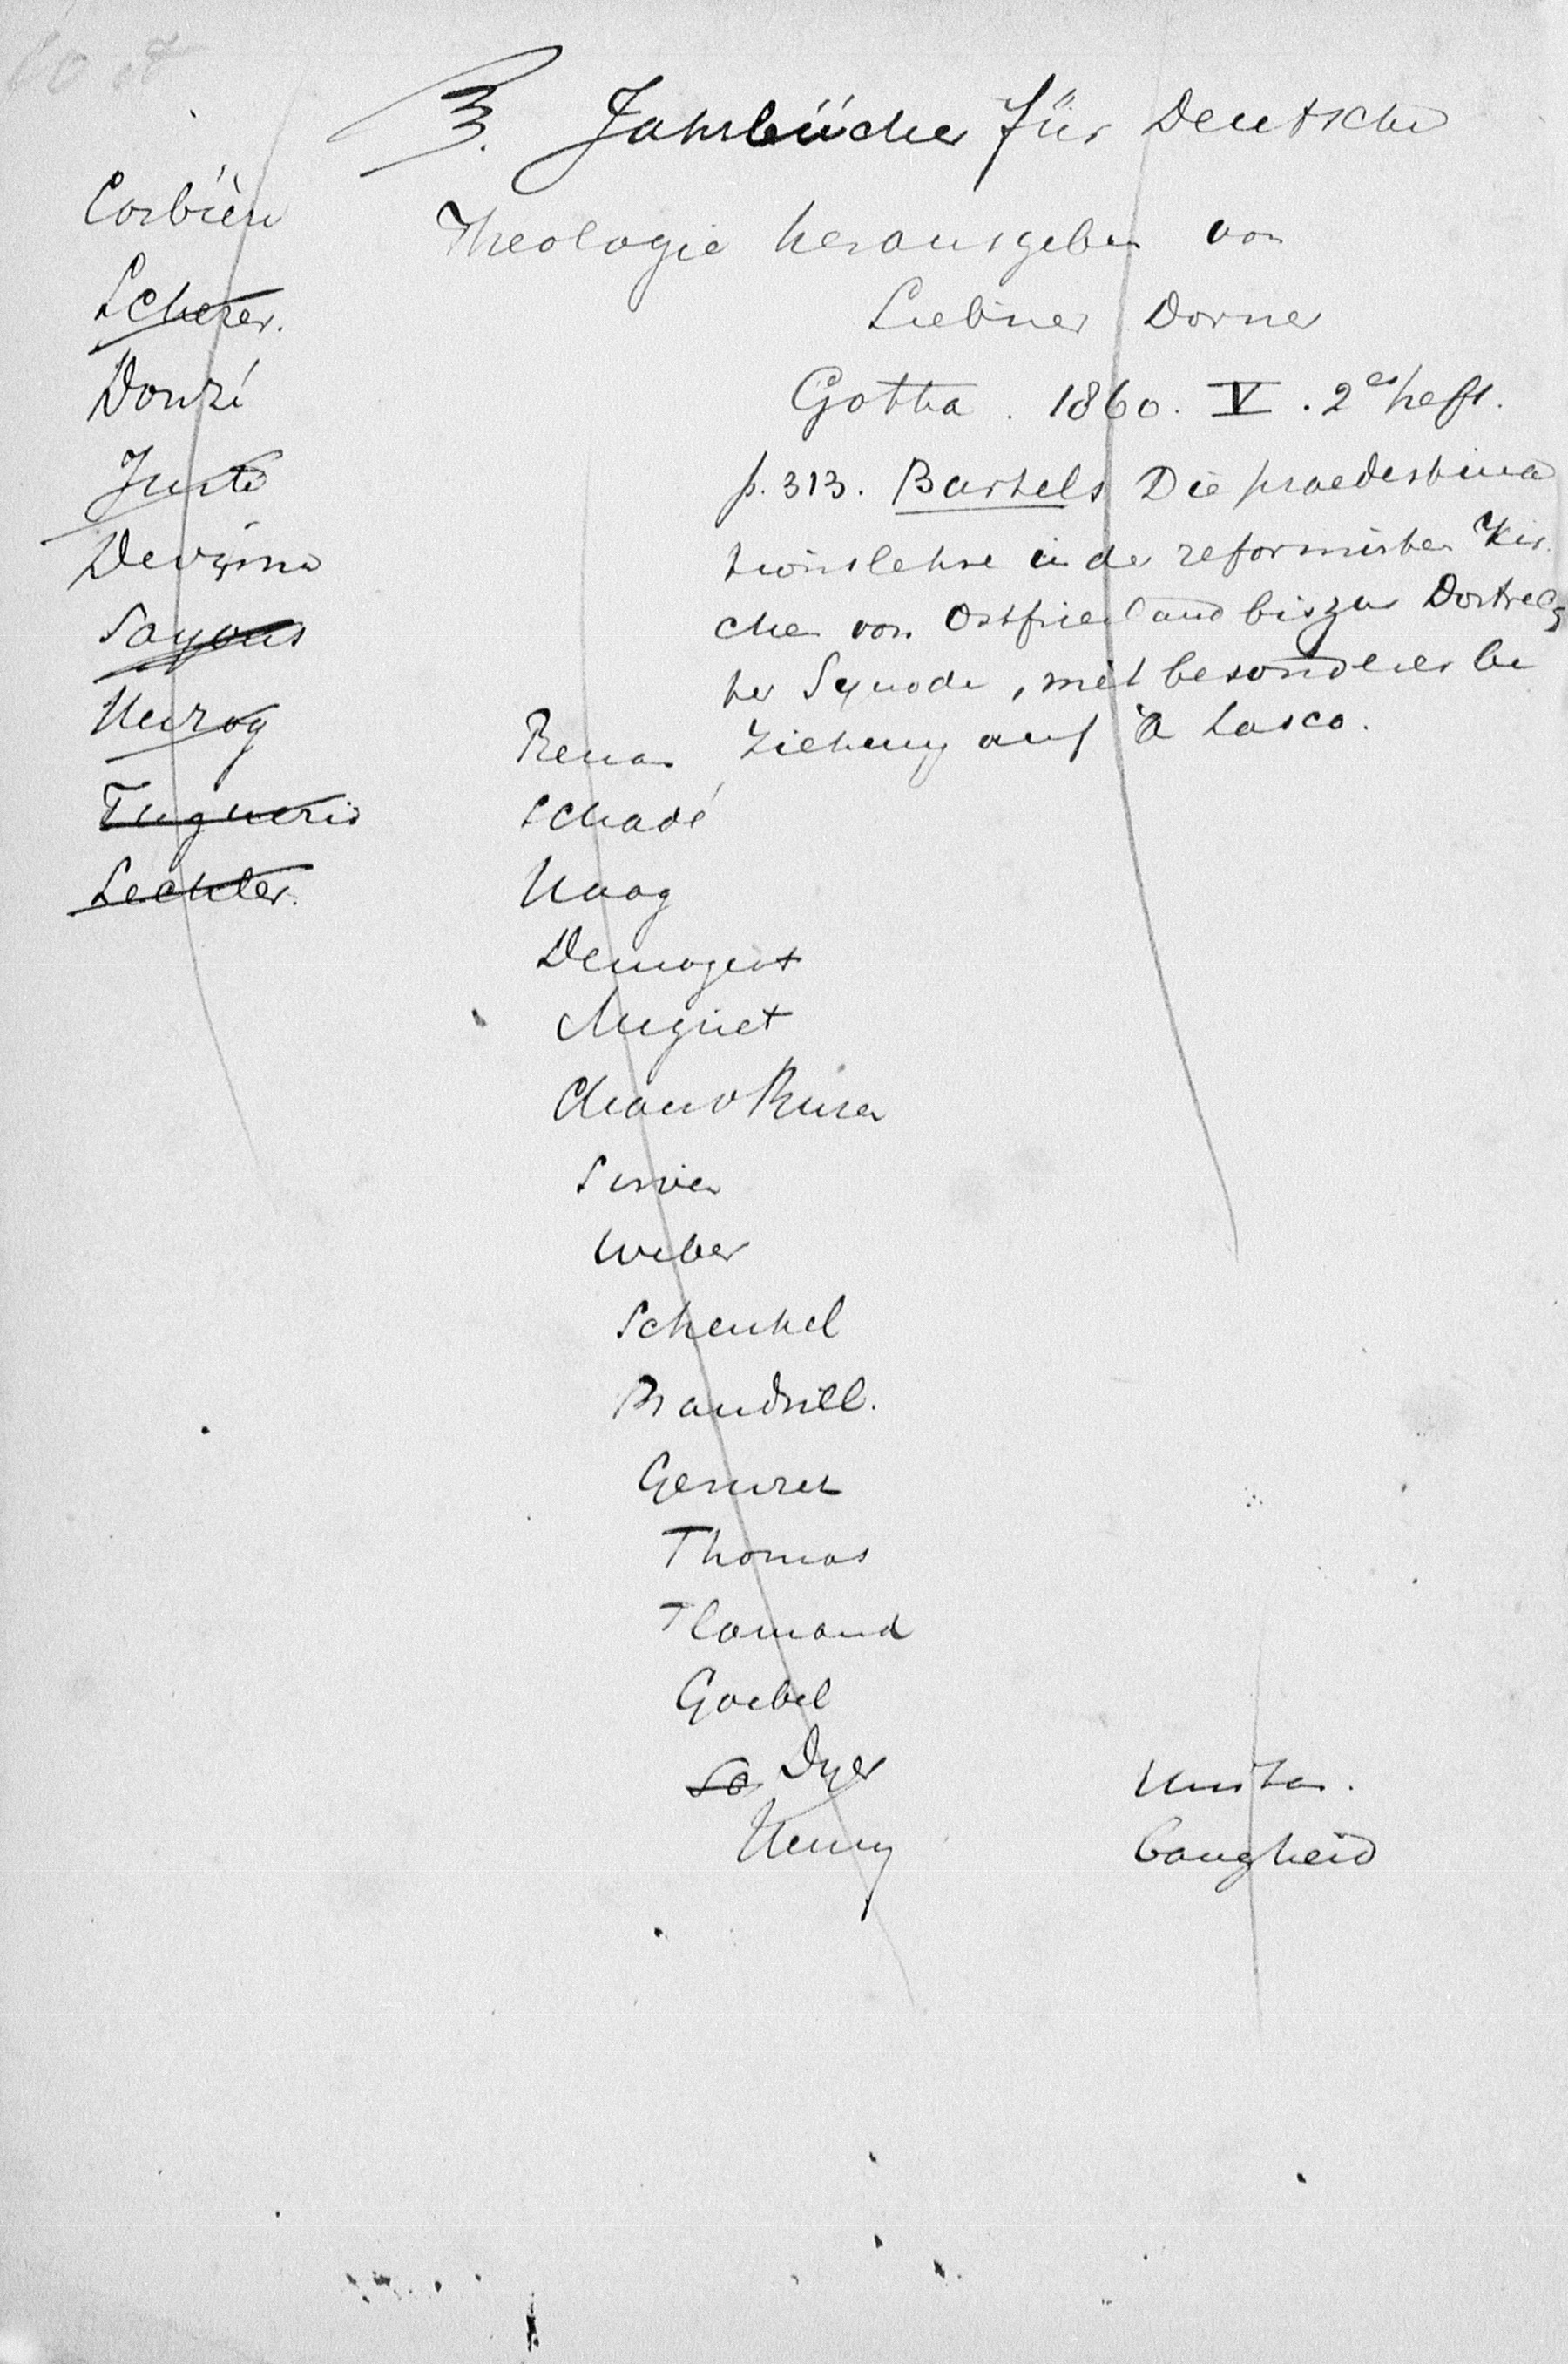 B. Jahrbücher für Deutsche
Theologie herausgeben von
Liebner Dorner
Gotha. 1860. V. 2es heft.
p. 313. Bartels Die praedestina
tionslehre in der reformirten Kir
chen von Ostfriesland bis zur Dortrech
ter Synode, mit besonderer be
ziehung auf a Lasco.
Corbière
Scherer.
Douzé
Juste
Sayous
Herzog
Lechler.
Renan
Schadé
Haag
Demogeot
Mignet
Weber
Schenkel
Baudrill.
Geruzez
Thomas
Flamand
Goebel
Dyer
Henry